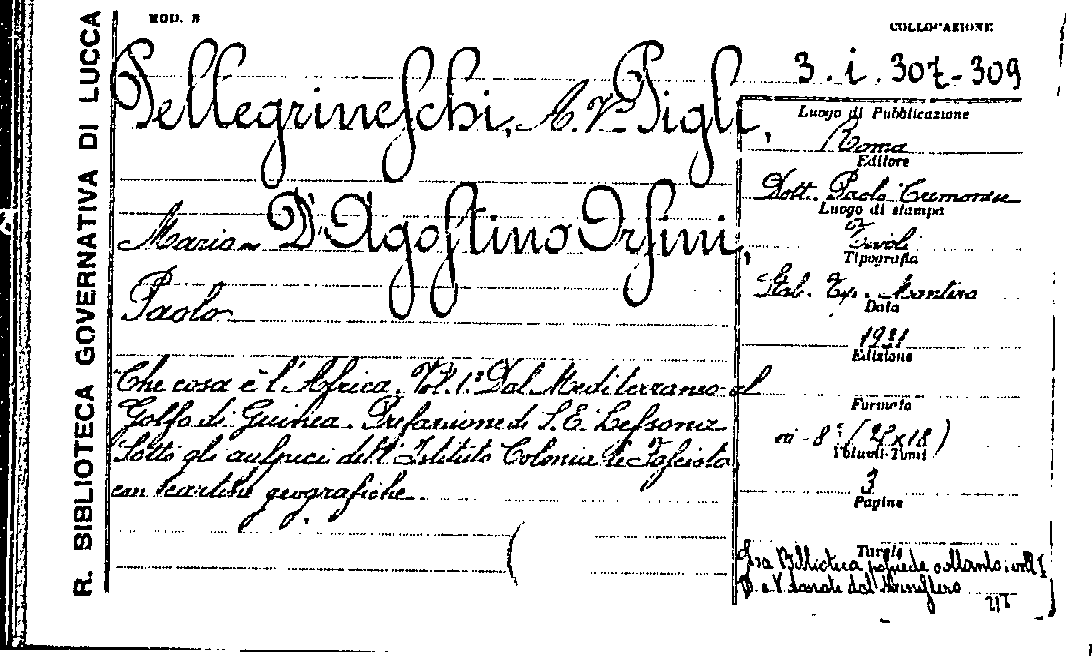 R. BIBLIOTECA GOVERNATIVA DI LUCCA
MOD. B
COLLOCAZIONE
3. i. 307-309
Pellegrineschi, A. V. Pigli,
Maria - D'Agostino Orsini,
Paolo
Che cosa è l'Africa. Vol. 1º Dal Mediterraneo al
Golfo di Guinea. Prefazione di S. E. Lessona
Sotto gli auspici dell'Istituto Coloniale Fascista
con cartine geografiche.
Luogo di Pubblicazione
Roma
Editore
Dott. Paolo Cremonese
Luogo di stampa
Tivoli
Tipografia
Stab. Tip. Mantero
Data
Edizione
Formato
in-8º (25x18)
Volumi-Tomi
3
Pagine
Tavole
La Biblioteca possiede soltanto i voll. I